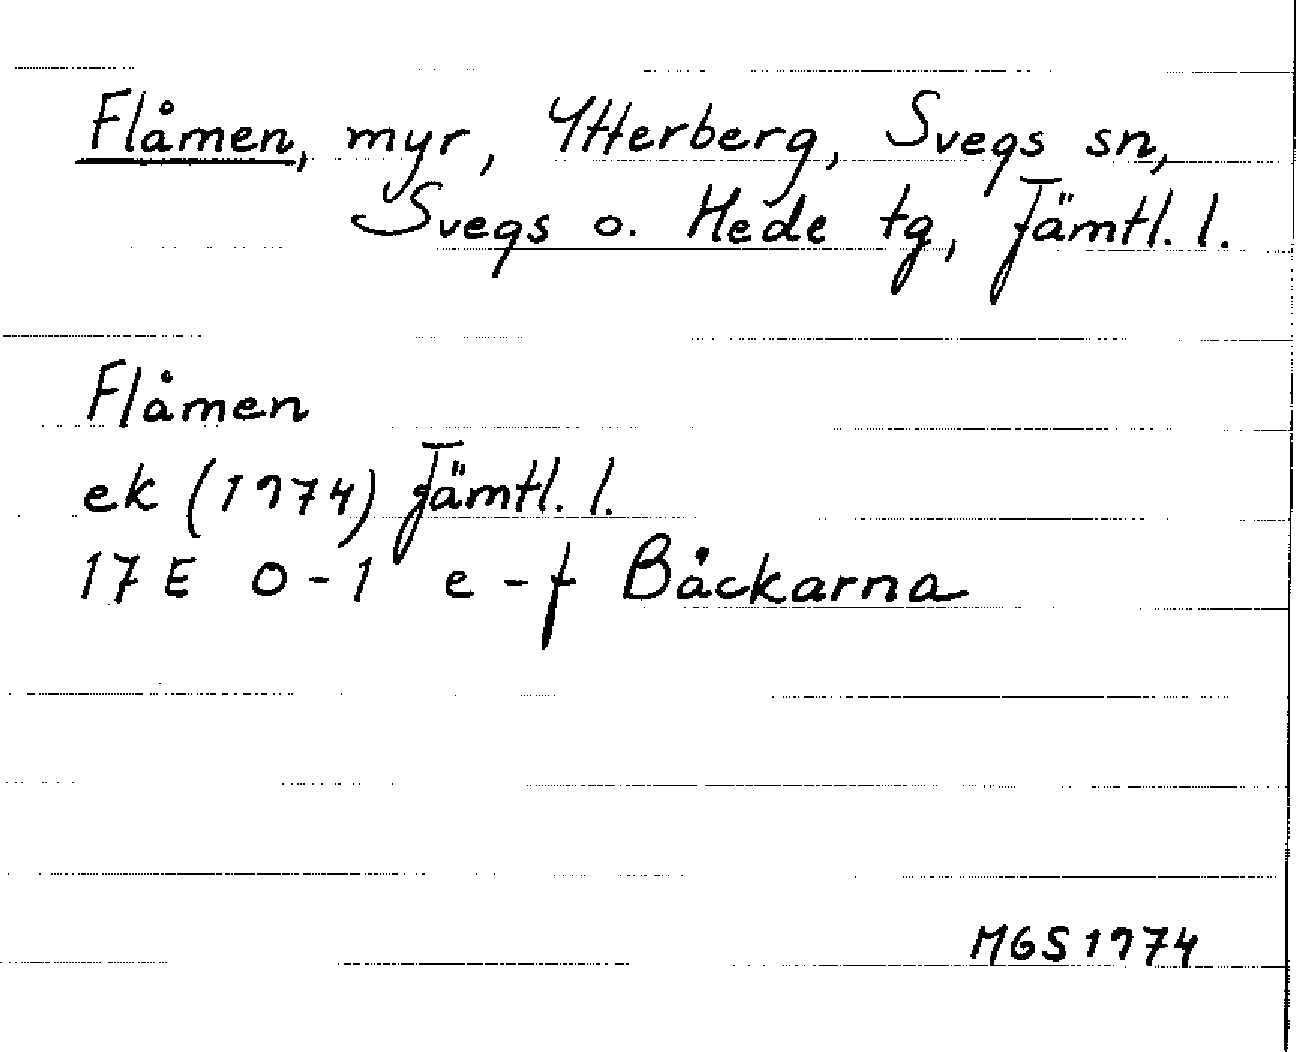 Flåmen, myr, Ytterberg, Svegs sn,
Svegs o. Hede tg, Jämtl. l.
Flåmen
ek (1974) Jämtl. l.
17 E 0-1 e-f Bäckarna
MGS 1974